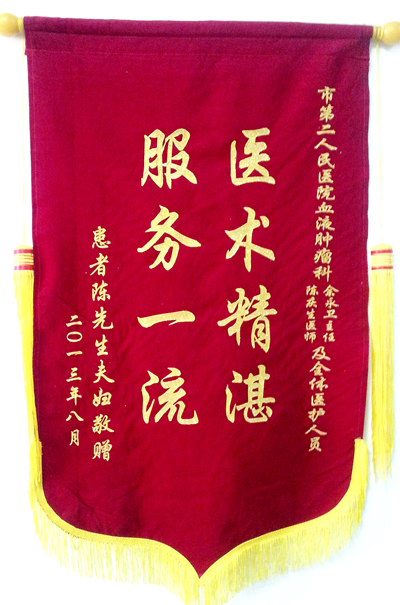 市第二人民医院血液肿瘤科
余永卫主任
陈庆生医师
及全体医护人员
医术精湛
服务一流
患者陈先生夫妇敬赠
二〇一三年八月